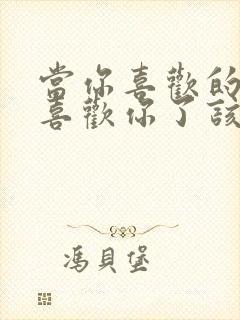 當你喜歡的
喜歡你了該
馮貝堡